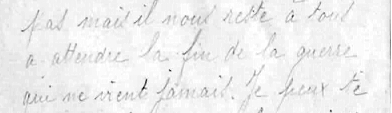 pas mais il nous reste à tous
a attendre la fin de la guerre
qui ne vient jamais. Je peux te